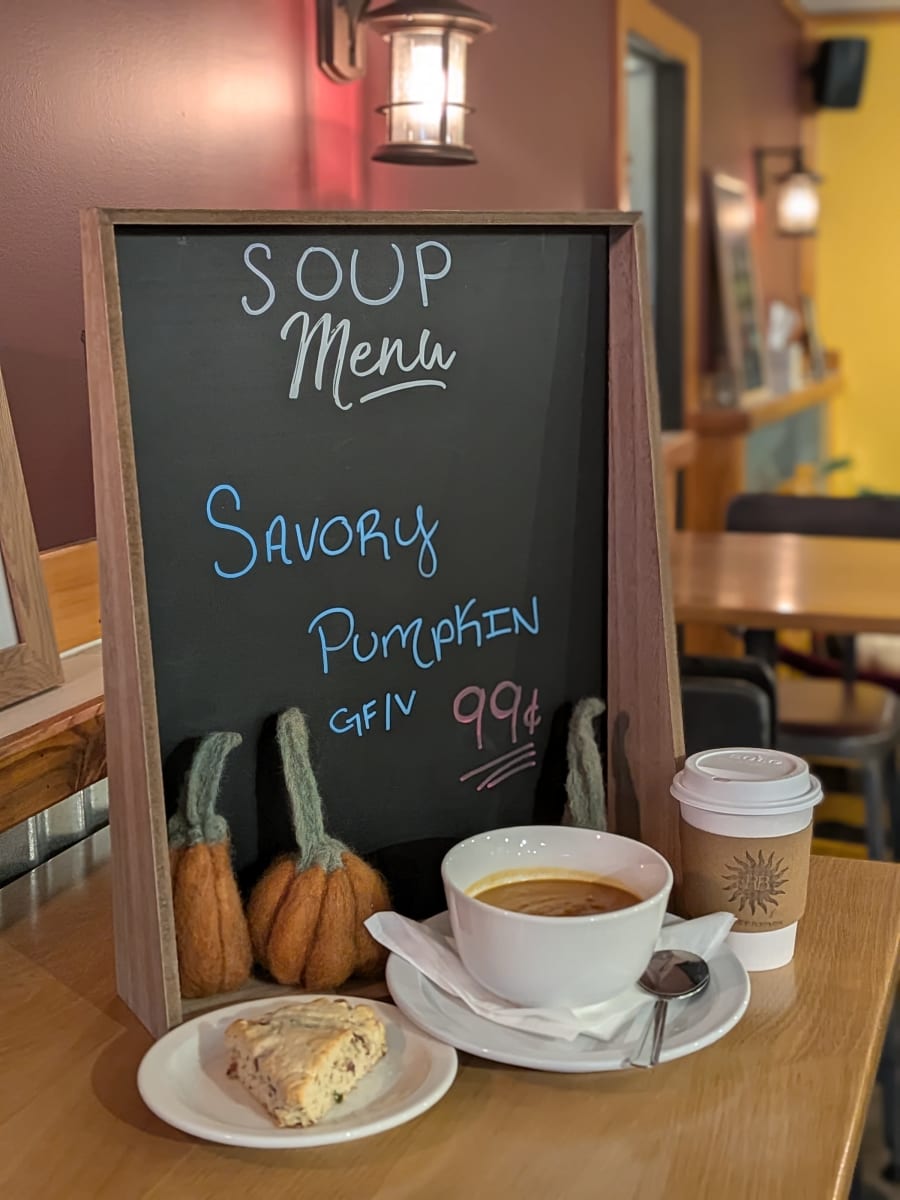 SOUP
Menu
SAVORY
PUMPKIN
GF/V 99¢
SOLO